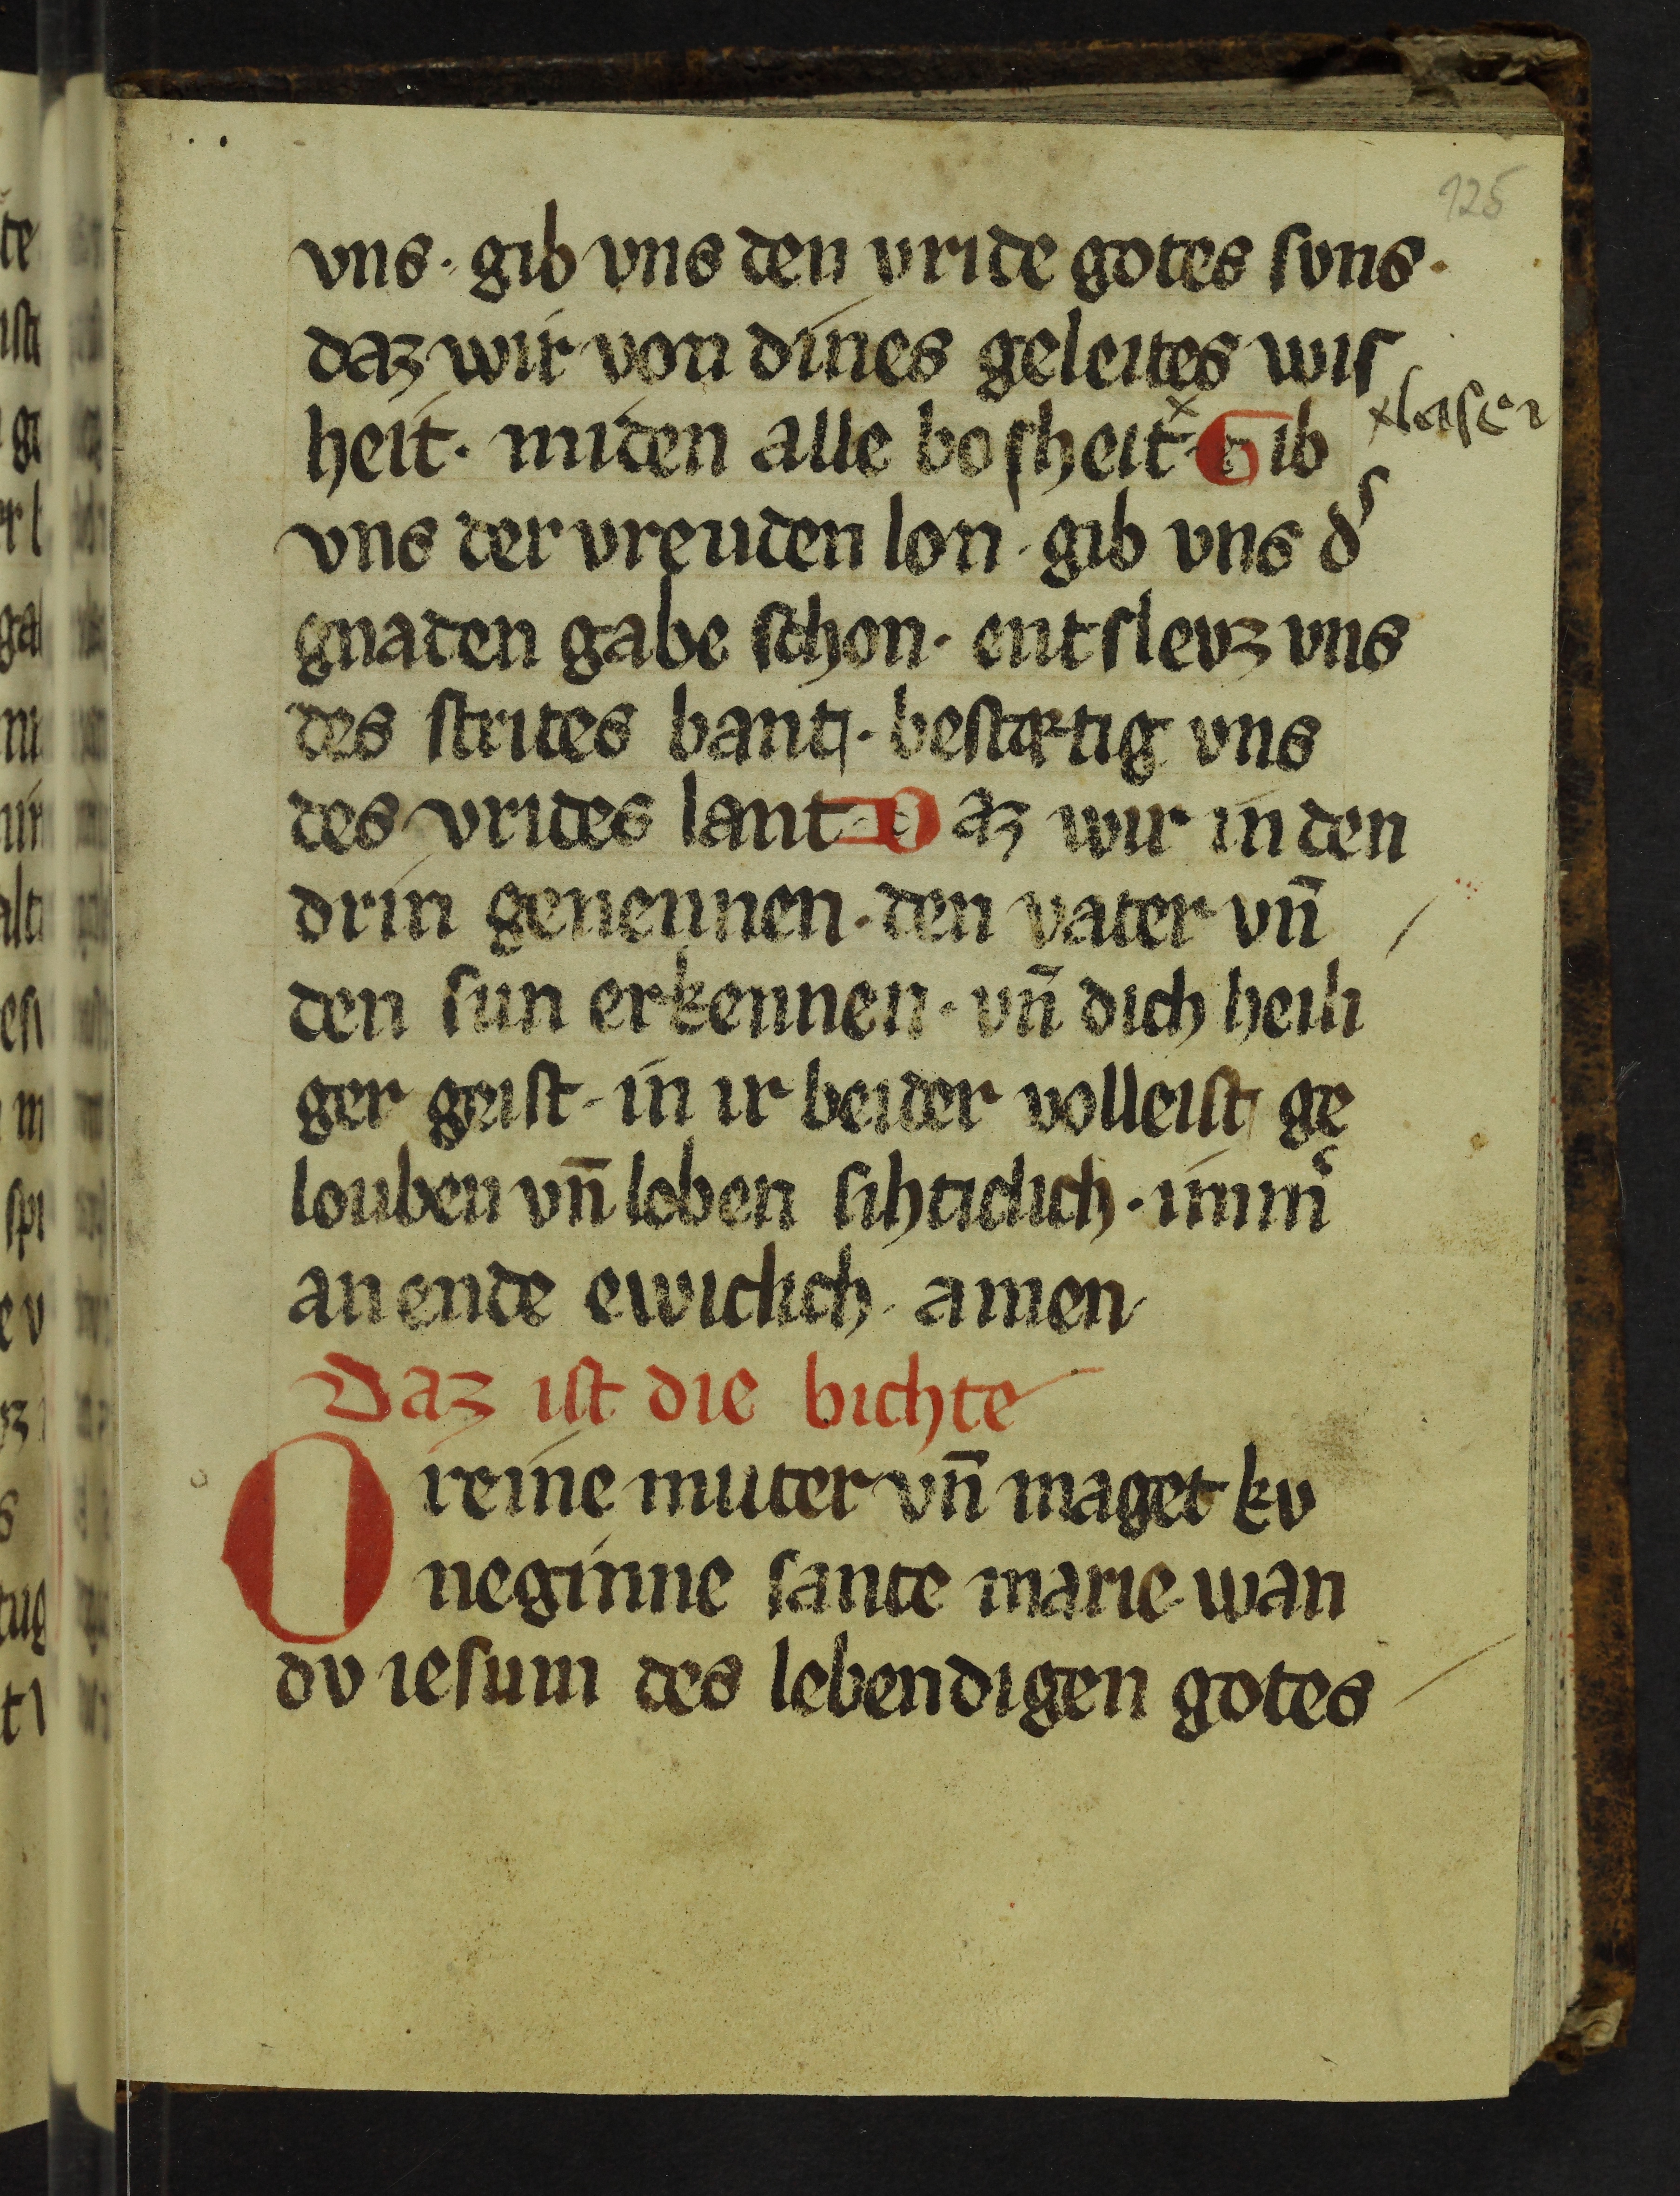 125
vns · gib vns den vride gotes suns ·
daz wir von dines geleites wis
heit · miden alle bosheit · Gib
vns der vreuden lon · gib vns d͛
gnaden gabe schon · entslevz vns
des strites bant · bestætig vns
des vrides lant · Daz wir in den
drin genennen · den vater vn̄
den sun erkennen · vn̄ dich heili
ger geist · in ir beider volleist ge
louben vn̄ loben sihticlich · imm͛
an ende ewiclich · amen
Daz ist die bichte
O reine muter vn̄ maget kv
neginne sante marie wan
dv iesum des lebendigen gotes